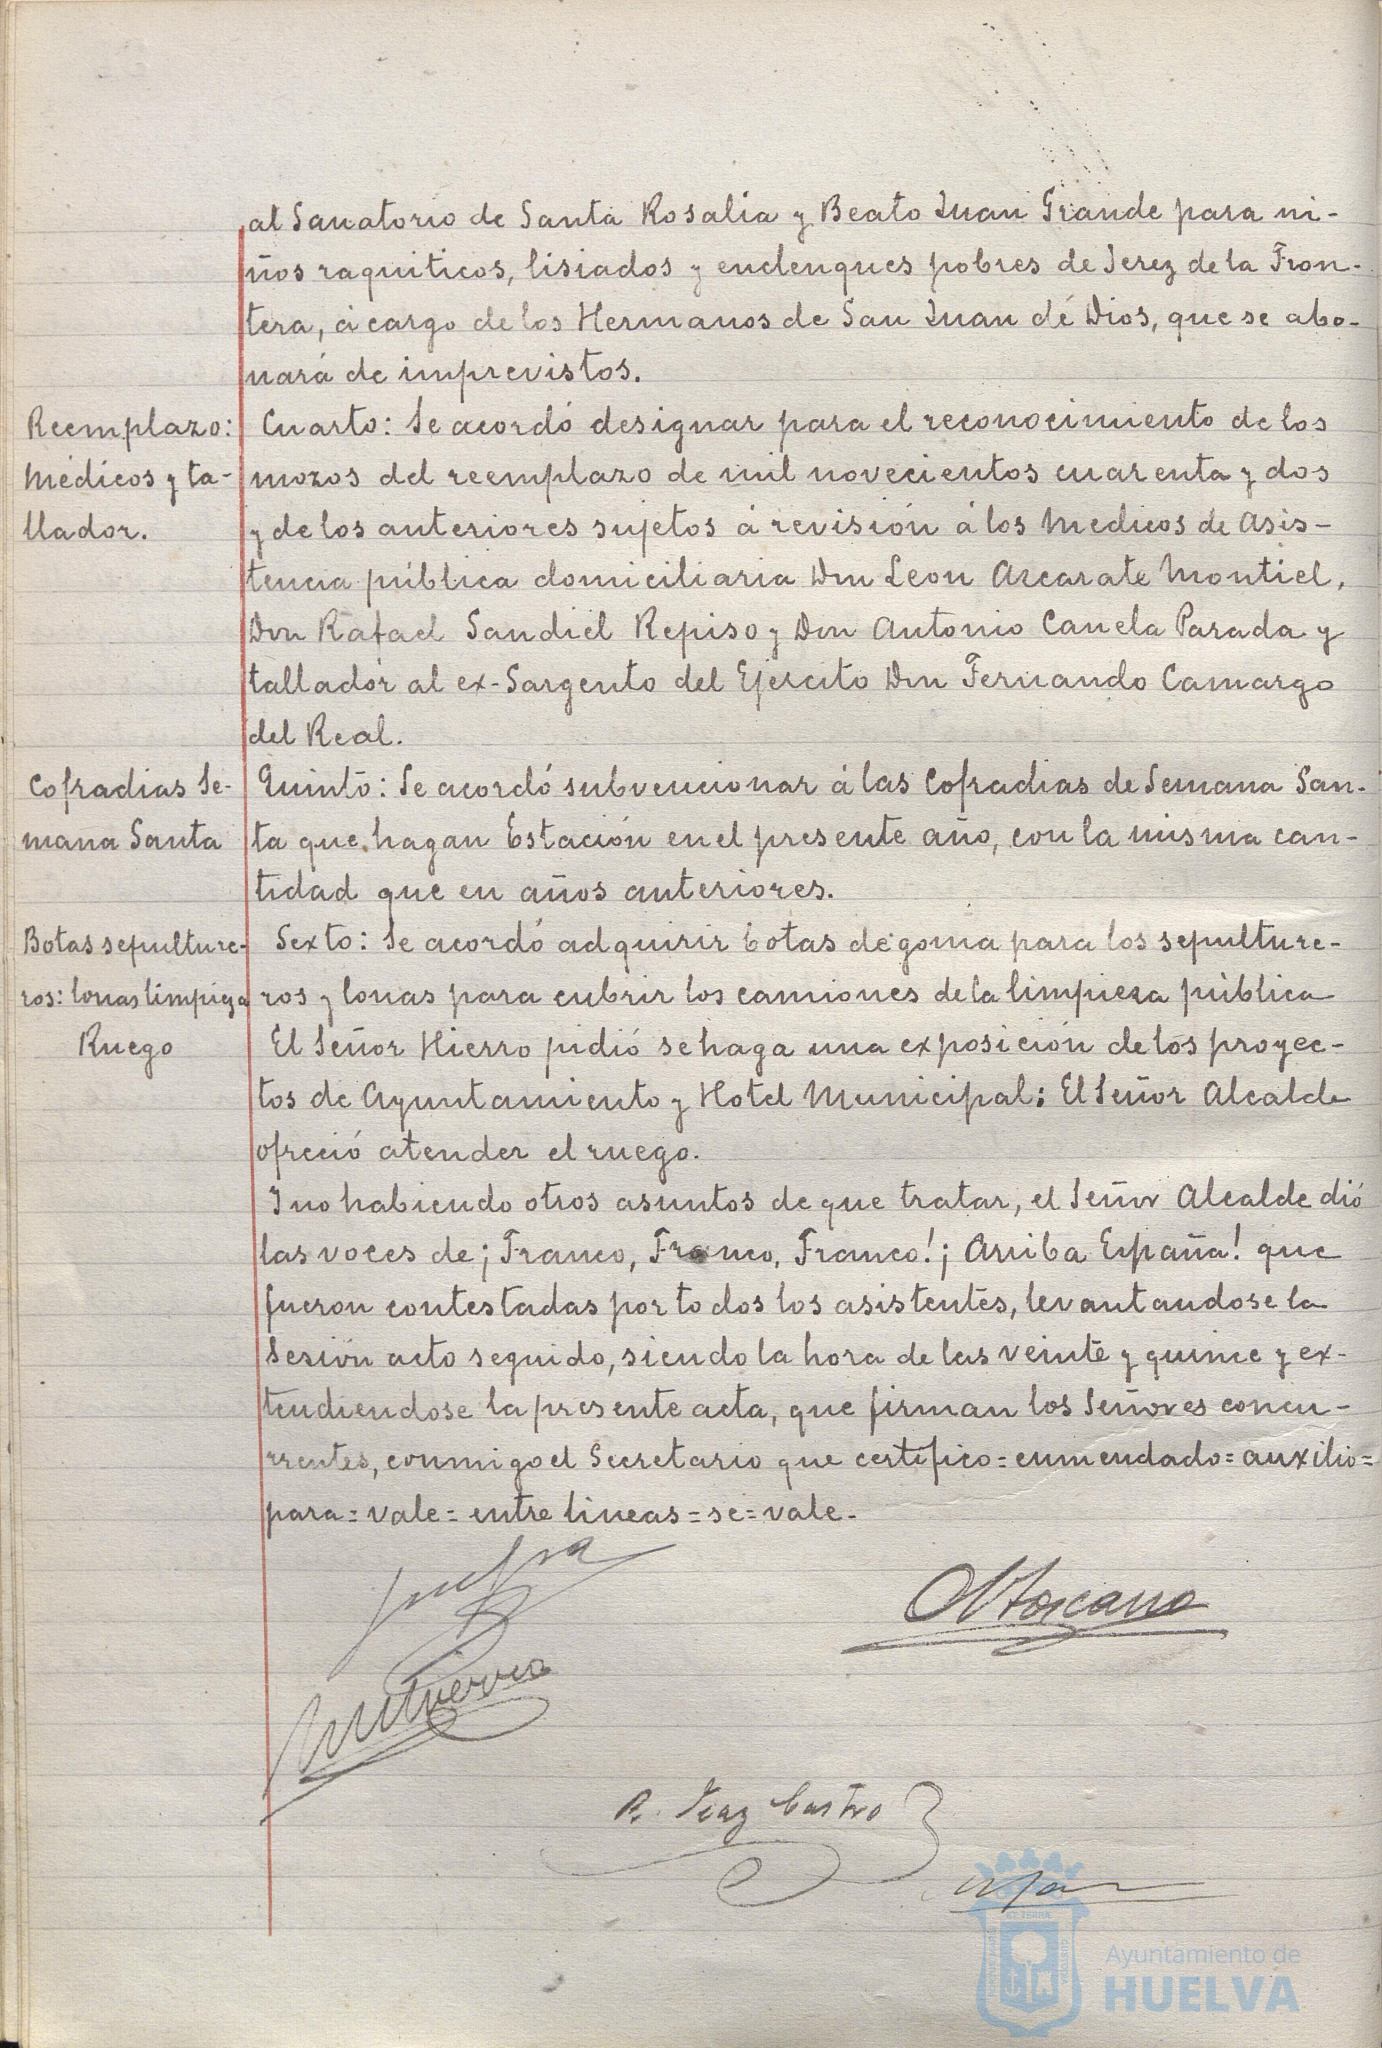 al Sanatorio de Santa Rosalia y Beato Juan Grande para ni-
ños raquiticos, lisiados y enclenques pobres de Jerez de la Fron-
tera, á cargo de los Hermanos de San Juan dé Dios, que se abo-
nará de imprevistos.
Reemplazo:
Médicos y ta-
llador.
Cuarto: Se acordó designar para el reconocimiento de los
mozos del reemplazo de mil novecientos cuarenta y dos
y de los anteriores sujetos á revisión á los Medicos de Asis-
tencia pública domiciliaria Don Leon Azcarate Montiel,
Don Rafael Sandiel Repiso y Don Antonio Canela Parada y
tallador al ex-Sargento del Ejercito Don Fernando Camargo
del Real.
Cofradias Se-
mana Santa
Quinto: Se acordó subvencionar á las Cofradias de Semana San-
ta que hagan Estación en el presente año, con la misma can-
tidad que en años anteriores.
Botas sepulture-
ros: lonas limpieza
Sexto: Se acordó adquirir botas de goma para los sepulture-
ros y lonas para cubrir los camiones de la limpieza pública
Ruego
El Señor Hierro pidió se haga una exposición de los proyec-
tos de Ayuntamiento y Hotel Municipal: El Señor Alcalde
ofreció atender el ruego.
Y no habiendo otros asuntos de que tratar, el Señor Alcalde dió
las voces de ¡Franco, Franco, Franco! ¡Arriba España! que
fueron contestadas por todos los asistentes, levantandose la
sesión acto seguido, siendo la hora de las veinte y quince y ex-
tendiendose la presente acta, que firman los Señores concu-
rrentes, conmigo el Secretario que certifico=enmendado=auxilio=
para=vale=entre lineas=se=vale-
Toscano
R. Diaz Castro
Ayuntamiento de
HUELVA